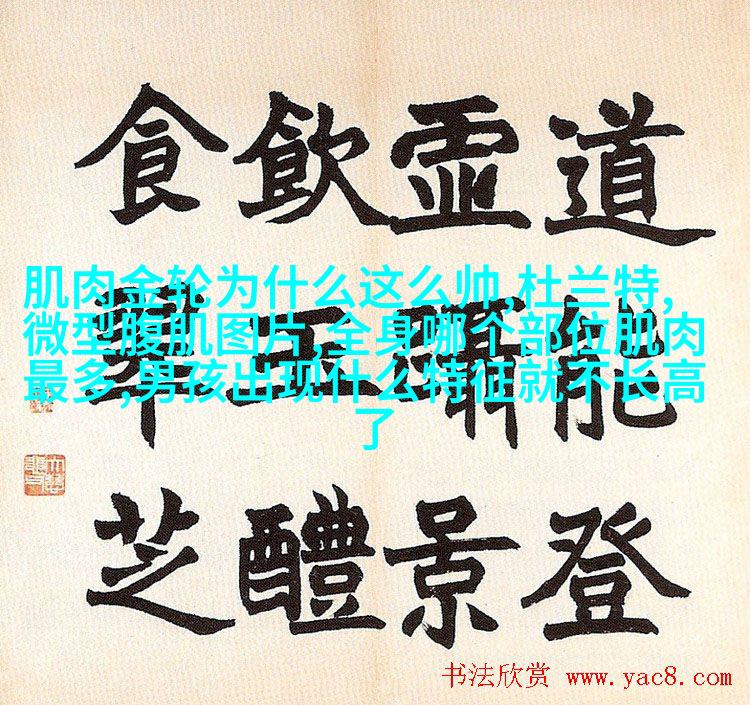 道能登
虚躡景
飲玉醴
食翠芝
肌肉金轮为什么这么帅,杜兰特,
微型腹肌图片,全身哪个部位肌肉
最多,男孩出现什么特征就不长高
了
书法欣赏 www.yac8.com